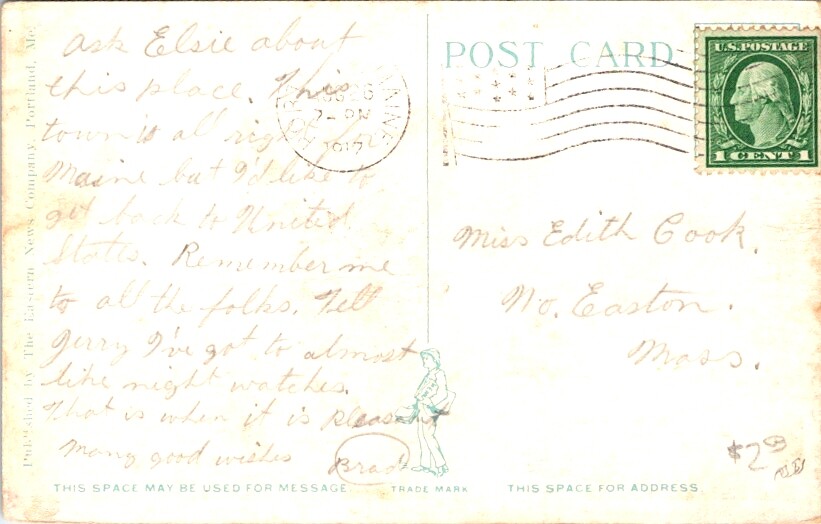 Published by The Eastern News Company, Portland, Me.
Ask Elsie about
this place. This
town is all right for
Maine but I'd like to
get back to United
States. Remember me
to all the folks. Tell
Jerry I've got to almost
like night watches.
That is when it is pleasant
Many good wishes
Brad
THIS SPACE MAY BE USED FOR MESSAGE.
TRADE MARK
POST CARD
7-PM
1917
U.S. POSTAGE
1 CENT 1
Miss Edith Cook.
No. Easton.
Mass.
$2
THIS SPACE FOR ADDRESS